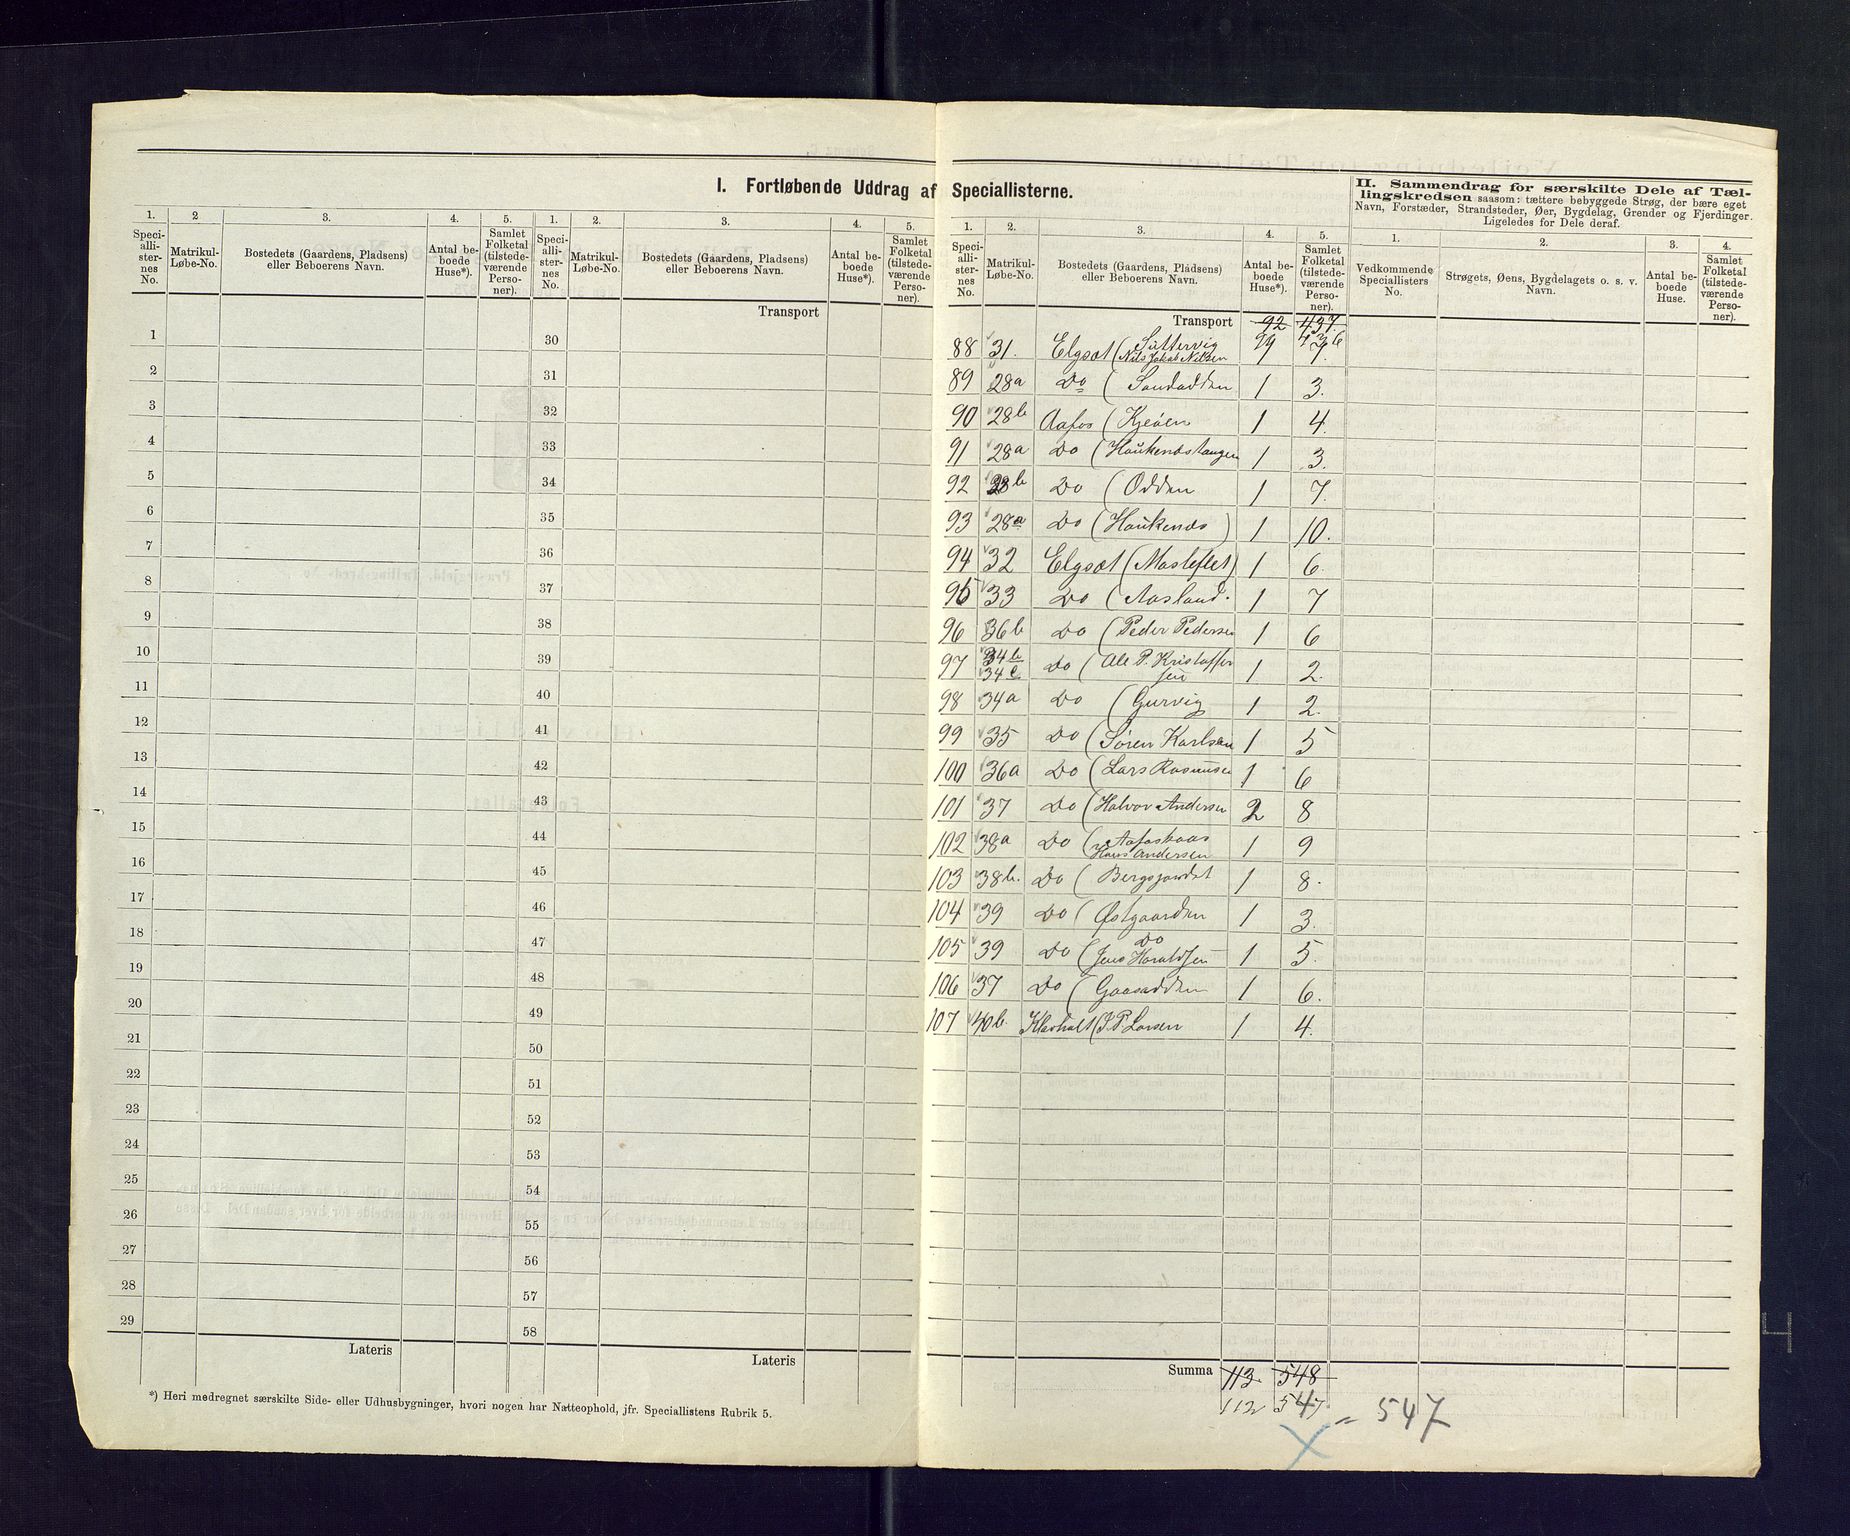 I. Fortløbende Uddrag af Speciallisterne.
1. 2 3. 4. 5. 1. 2. 3. 4. 5.
Speci-alli-ster-nes No. Matrikul-Løbe-No. Bostedets (Gaardens, Pladsens) eller Beboerens Navn. Antal be-boede Huse*). Samlet Folketal (tilstede-værende Perso-ner).
Speci-alli-ster-nes No. Matrikul-Løbe-No. Bostedets (Gaardens, Pladsens) eller Beboerens Navn. Antal be-boede Huse*). Samlet Folketal (tilstede-værende Perso-ner).
Transport
1 30
2 31
3 32
4 33
5 34
6 35
7 36
8 37
9 38
10 39
11 40
12 41
13 42
14 43
15 44
16 45
17 46
18 47
19 48
20 49
21 50
22 51
23 52
24 53
25 54
26 55
27 56
28 57
29 58
Lateris Lateris
*) Heri medregnet særskilte Side- eller Udhusbygninger, hvori nogen har Natteophold, jfr. Speciallistens Rubrik 5.
1. 2. 3. 4. 5.
Speci-alli-ster-nes No. Matrikul-Løbe-No. Bostedets (Gaardens, Pladsens) eller Beboerens Navn. Antal be-boede Huse*). Samlet Folketal (tilstede-værende Perso-ner).
Transport 92 437
436
88 31. Elgsæt (Süttervig
Nils Jakob Nilsen 7.
89 28a Do (Sandodden 1 3.
90 28b Aafos (Kjeöen 1 4.
91 28a Do (Haükenæstangen 1 3.
92 28b Do (Odden 1 7.
93 28a Do (Haükenæs) 1 10.
94 32 Elgsæt 1 6.
95 33 Do (Aasland. 1 7
96 36b Do (Peder Pedersen 1 6
97 34b
34c Do (Ole P. Kristoffer
sen 1 2.
98 34a Do (Gurvig 1 2.
99 35 Do (Søren Karlsen 1 5
100 36a Do (Lars Rasmusen 1 6
101 37 Do (Halvor Andersen 2 8
102 38a Do (Aafoskaas
Hans Andersen 1 9
103 38b. Do 1 8.
104 39 Do (Østgaarden 1 3.
105 39 Do (Do
Jens Haraldsen 1 5.
106 37 Do (Gaasodden 1 6.
107 40b. Klavholt (J P Larsen 1 4.
Summa 113. 548
112 547
= 547
II. Sammendrag for særskilte Dele af Tæl-
lingskredsen saasom: tættere bebyggede Strøg, der bære eget
Navn, Forstæder, Strandsteder, Øer, Bygdelag, Grender og Fjerdinger.
Ligeledes for Dele deraf.
1. 2. 3. 4.
Vedkommende Speciallisters No. Strøgets, Øens, Bygdelagets o. s. v. Navn. Antal be-boede Huse. Samlet Folketal (tilstede-værende Perso-ner).